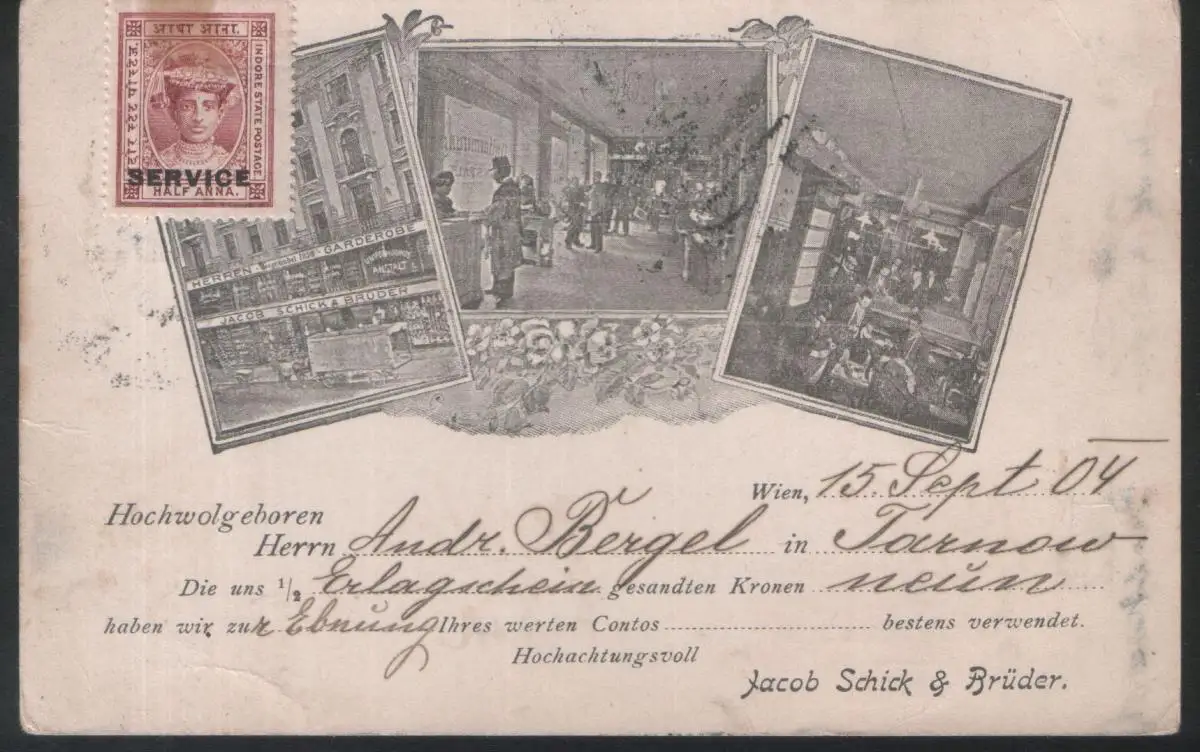 आधा आना.
INDORE STATE POSTAGE.
SERVICE
HALF ANNA.
HERREN - GARDEROBE
JACOB SCHICK & BRÜDER
Wien, 15. Sept 04.
Hochwolgeboren
Herrn Andr. Bergel in Tarnow
Die uns ½ Erlagschein gesandten Kronen neun
haben wir zur Ebnung Ihres werten Contos bestens verwendet.
Hochachtungsvoll
Jacob Schick & Brüder.